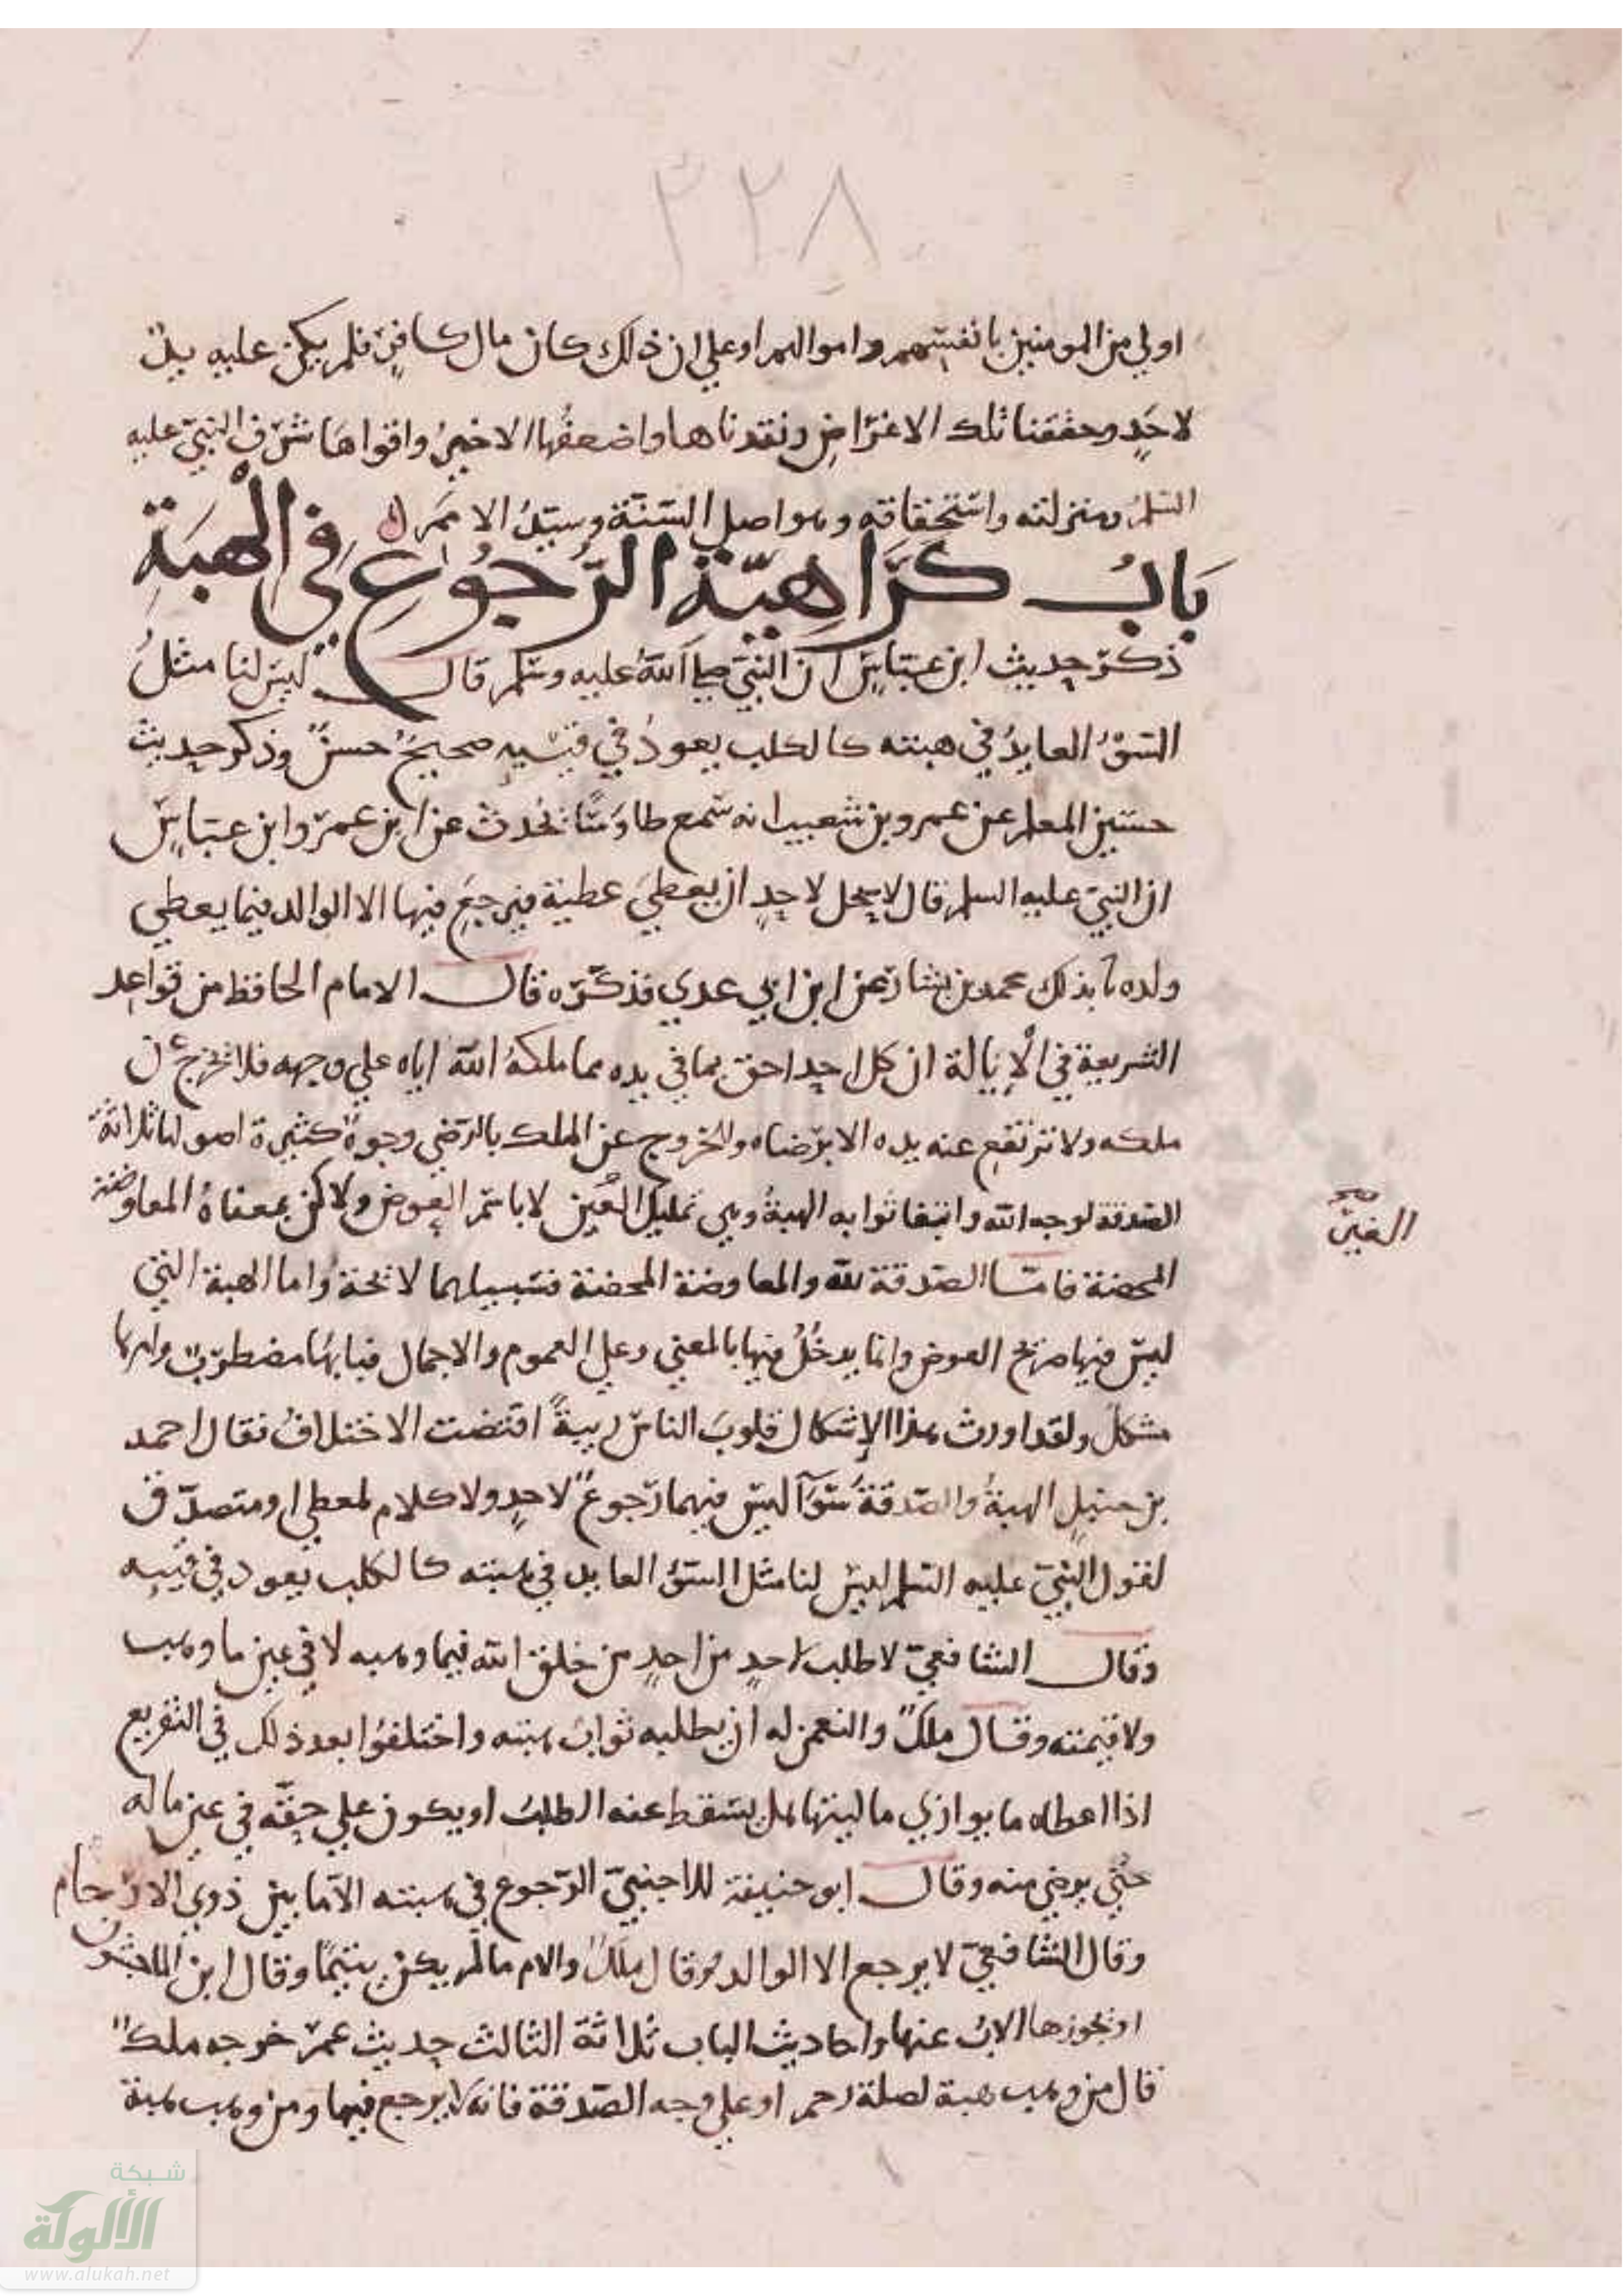 ٣٢٨
اولي من المومنين بانفسهم واموالهم او علي ان ذلك كان مال كافر فلم يكن عليه يد
لاحد وحققنا تلك الاغراض ونقدناها واضعفها الاخير واقواها شرف النبي عليه
السلم ومنزلته واستحقاقه وهو اصل السنة وسيد الامم
باب كراهية الرجوع في الهبة
ذكر حديث ابن عباس ان النبي صلى الله عليه وسلم قال ليس لنا مثل
السوْ العايد في هبته كالكلب يعود في قيئيه صحيح حسن وذكر حديث
حسين المعلم عن عمرو بن شعيب انه سمع طاوسًا يحدث عن ابن عمر وابن عباس
ان النبي عليه السلم قال لا يحل لاحد ان يعطي عطية فيرجع فيها الا الوالد فيما يعطي
ولده نا بذلك محمد بن بشار عن ابن ابي عدي فذكره قال الامام الحافظ من قواعد
الشريعة في الإيالة ان كل احد احق بما في يده مما ملكه الله اياه علي وجهه فلا تخرج عن
ملكه ولا ترتفع عنه يده الا برضاه والخروج عن الملك بالرضي وجوه كثيرة اصولها ثلاثة
الصدقة لوجه الله وابتغا ثوابه الهبة وهي تمليك العين لا باسم العوض ولاكن بمعناه المعاوضة
المحضة فامّا الصدقة لله والمعاوضة المحضة فسبيلهما لايحة واما الهبة التي
ليس فيها صريح العوض وانما يدخل فيها بالمعني وعلي العموم والاجمال فبابها مضطرب وامرها
مشكل ولقد اورث هذا الإشكال قلوب الناس ريبةً اقتضت الاختلاف فقال احمد
بن حنبل الهبة والصدقة سوآ ليس فيهما رجوع لاحد ولا كلام لمعطي او متصدق
لقول النبي عليه السلم ليس لنا مثل السوْ العايد في هبته كالكلب يعود في قيئه
وقال الشافعي لا طلب لاحد من احد من خلق الله فيما وهبه لا في عين ما وهب
ولا قيمته وقال ملك والنعمن له ان يطلبه ثواب هبته واختلفوا بعد ذلك في التفريع
اذا اعطاه ما يوازي ماليتها هل يسقط عنه الطلب او يكون علي حقه في عين ماله
حتي يرضي منه وقال ابو حنيفة للاجنبي الرجوع في هبته الا ما بين ذوي الارحام
وقال الشافعي لا يرجع الا الوالد وقال ملك والام ما لم يكن يتيمًا وقال ابن الماجشون
او يحوزها الاب عنها واحاديث الباب ثلاثة الثالث حديث عمر خرجه ملك
قال من وهب هبة لصلة رحم او علي وجه الصدقة فانه لا يرجع فيها ومن وهب هبة
شبكة
الألوكة
www.alukah.net